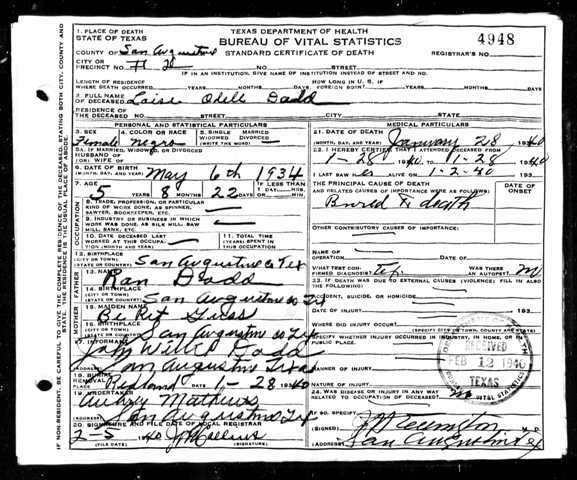 1. PLACE OF DEATH
STATE OF TEXAS
TEXAS DEPARTMENT OF HEALTH
BUREAU OF VITAL STATISTICS
STANDARD CERTIFICATE OF DEATH
4948
COUNTY OF San Augustine
REGISTRAR'S NO.
CITY OR
PRECINCT NO.
NO. STREET
IF IN AN INSTITUTION, GIVE NAME OF INSTITUTION INSTEAD OF STREET AND NO.
LENGTH OF RESIDENCE
WHERE DEATH OCCURRED YEARS MONTHS DAYS
HOW LONG IN U. S. IF
FOREIGN BORN? YEARS MONTHS DAYS
2. FULL NAME
OF DECEASED Odell Dadd
RESIDENCE OF
THE DECEASED NO. STREET CITY STATE
PERSONAL AND STATISTICAL PARTICULARS
3. SEX
Female
4. COLOR OR RACE
negro
5. SINGLE MARRIED
WIDOWED DIVORCED
(WRITE THE WORD)
5A. IF MARRIED, WIDOWED, OR DIVORCED
HUSBAND OF
(OR) WIFE OF
6. DATE OF BIRTH
(MONTH, DAY, AND YEAR) May 6th 1934
7. AGE
5 YEARS 8 MONTHS 22 DAYS
IF LESS THAN
1 DAY
HRS. MIN.
OCCUPATION
8. TRADE, PROFESSION, OR PARTICULAR
KIND OF WORK DONE, AS SPINNER,
SAWYER, BOOKKEEPER, ETC.
9. INDUSTRY OR BUSINESS IN WHICH
WORK WAS DONE, AS SILK MILL, SAW
MILL, BANK, ETC.
10. DATE DECEASED LAST
WORKED AT THIS OCCUPATION (MONTH AND YEAR)
11. TOTAL TIME (YEARS)
SPENT IN THIS
OCCUPATION
12. BIRTHPLACE
(CITY OR TOWN)
(STATE OR COUNTRY) San Augustine Co Tex
FATHER
13. NAME
Dodd
14. BIRTHPLACE
(CITY OR TOWN)
(STATE OR COUNTRY) San Augustine co Tex
MOTHER
15. MAIDEN NAME
16. BIRTHPLACE
(CITY OR TOWN)
(STATE OR COUNTRY) San Augustine co Tex
17. INFORMANT
John Willie Dadd
(ADDRESS) San Augustine Texas
18. BURIAL
REMOVAL
PLACE DATE 1-28 1940
19. UNDERTAKER
Mathews
(ADDRESS) San Augustine Tex
20. SIGNATURE AND FILE DATE OF LOCAL REGISTRAR
2-5 40
(FILE DATE) (SIGNATURE)
MEDICAL PARTICULARS
21. DATE OF DEATH
(MONTH, DAY, AND YEAR) January 28 1940
22. I HEREBY CERTIFY THAT I ATTENDED DECEASED FROM
1-28 1940 TO 1-28 1940
I LAST SAW ALIVE ON 1-2-40 193
THE PRINCIPAL CAUSE OF DEATH
AND RELATED CAUSES OF IMPORTANCE WERE AS FOLLOWS:
DATE OF
ONSET
Burned To death
OTHER CONTRIBUTORY CAUSES OF IMPORTANCE:
NAME OF
OPERATION DATE OF
WHAT TEST CONFIRMED DIAGNOSIS?
WAS THERE
AN AUTOPSY
23. IF DEATH WAS DUE TO EXTERNAL CAUSES (VIOLENCE) FILL IN ALSO
THE FOLLOWING:
ACCIDENT, SUICIDE, OR HOMICIDE
DATE OF INJURY 193
WHERE DID INJURY OCCUR?
(SPECIFY CITY OR TOWN, COUNTY, AND STATE)
SPECIFY WHETHER INJURY OCCURRED IN INDUSTRY, IN HOME, OR IN
PUBLIC PLACE.
MANNER OF INJURY
NATURE OF INJURY
24. WAS DISEASE OR INJURY IN ANY WAY
RELATED TO OCCUPATION OF DECEASED? no
IF SO, SPECIFY
(SIGNED) M.D.
(ADDRESS) San Augustine Tex
RECEIVED
FEB 12 1940
TEXAS
VITAL STATISTICS